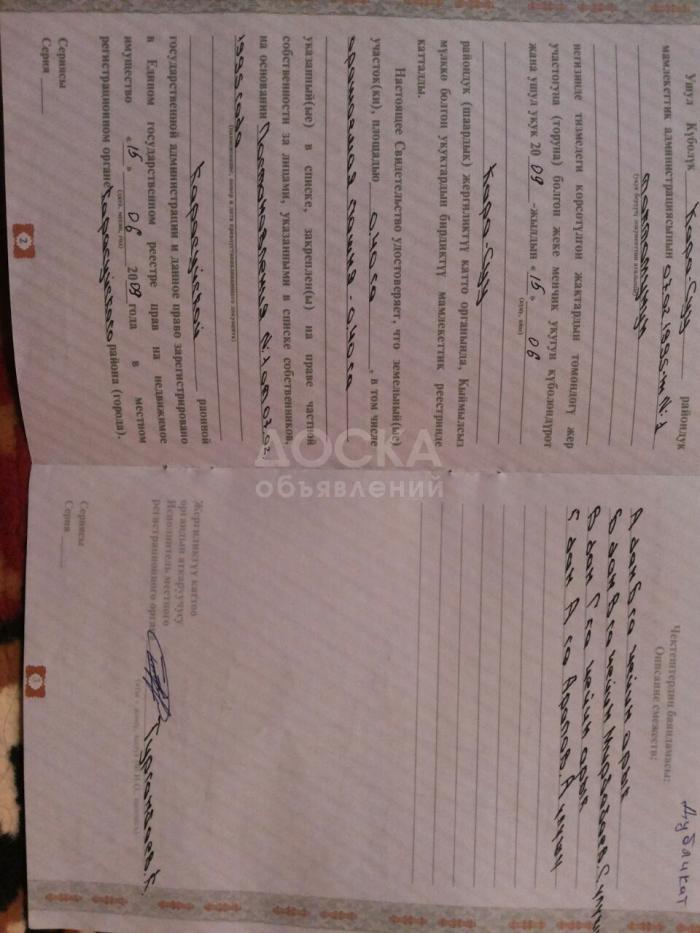 Ушул Күбөлүк Кара-Суу райондук
мамлекеттик администрациясынын 07.02 1995-ж №1
токтомунун
(укук берүүчү документтин аталышы)
негизинде тизмедеги көрсөтүлгөн жактардын төмөндөгү жер
участогуна (торуна) болгон жеке менчик укугун күбөлөндүрөт
жана ушул укук 2009 -жылдын «15» 06
(күнү, айы)
Кара-Суу
райондук (шаардык) жергиликтүү катто органында, Кыймылсыз
мүлккө болгон укуктардын бирдиктүү мамлекеттик реестринде
катталды.
Настоящее Свидетельство удостоверяет, что земельный(ые)
участок(ки), площадью 0.40 га , в том числе
орошаемая пашня - 0,40 га
указанный(ые) в списке, закреплен(ы) на праве частной
собственности за лицами, указанными в списке собственников,
на основании Постановления №1 от 07.02.
1995 года
(наименование, номер и дата правоустанавливающего документа)
Карасуйской районной
государственной администрации и данное право зарегистрировано
в Едином государственном реестре прав на недвижимое
имущество «15» 06 2009 года в местном
(дата, месяц, год)
регистрационном органе Карасуйского района (города).
Сериясы
Серия
2
Дубликат
Чектештердин баяндамасы:
Описание смежеств:
А дан Б га чейин арык
Б дан В га чейин Мирзабаев. С улушу
В дан Г га чейин арык
Г дан А га Арапов. А улушу
Жергиликтүү каттоо
органдын аткаруучусу
Исполнитель местного
регистрационного органа
Турганбаев. К.
Сериясы
Серия
3
ДОСКА
объявлений